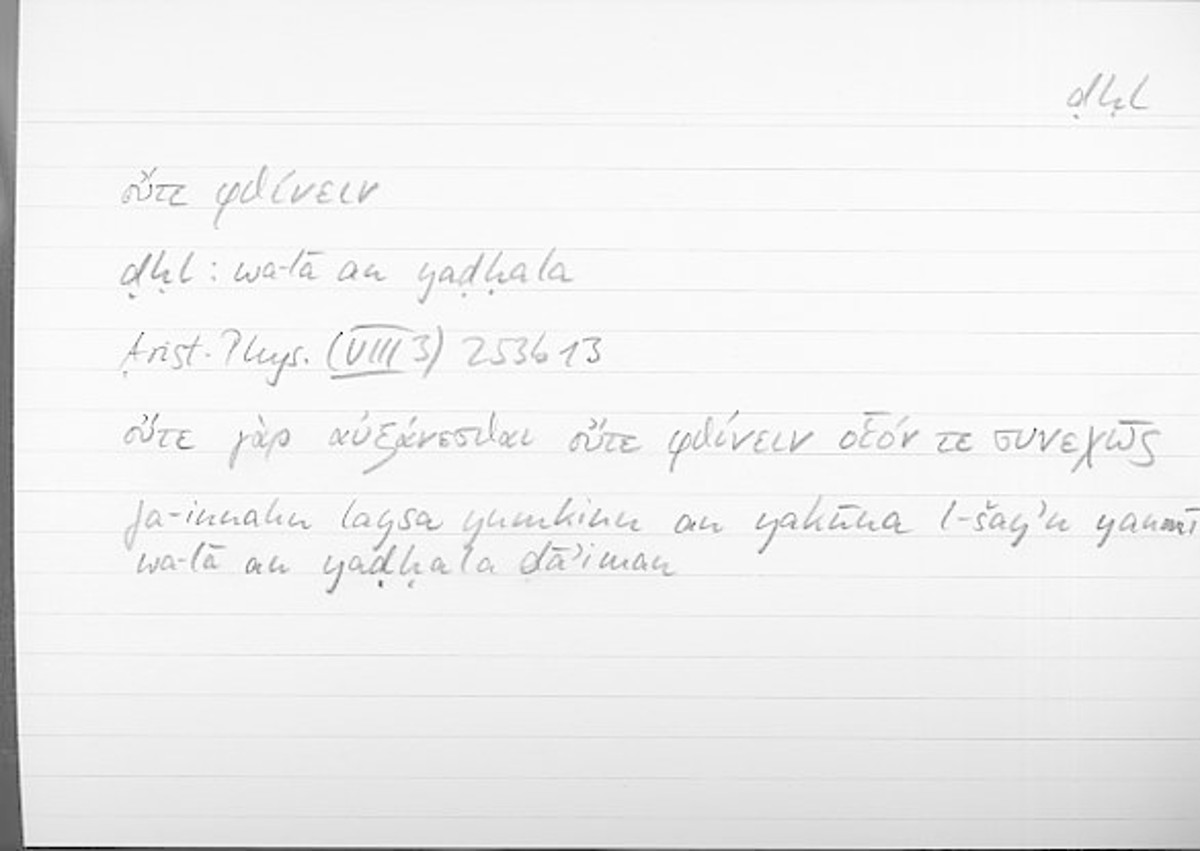 ḍḥl
οὔτε φθίνειν
ḍḥl : wa-lā an yaḍḥala
Arist. Phys. (VIII 3) 253b13
οὔτε γὰρ αὐξάνεσθαι οὔτε φθίνειν οἷόν τε συνεχῶς
fa-innahu laysa yumkinu an yakūna l-šay'u yanmī
wa-lā an yaḍḥala dā'iman